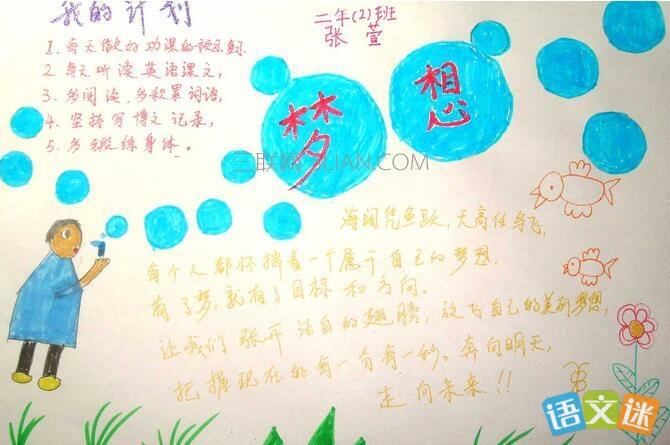 我的计划
二年(2)班
张萱
1、每天做好功课的预习。
2、每天听读英语课文,
3、多阅读,多积累词语,
4、坚持写博文记录,
5、多锻练身体。
梦想
三联网 3LIAN.COM
海阔凭鱼跃,天高任鸟飞,
每个人都怀揣着一个属于自己的梦想,
有了梦,就有了目标和方向。
让我们张开洁白的翅膀,放飞自己的美丽梦想,
把握现在的每一分每一秒。奔向明天,
走向未来!!
语文迷